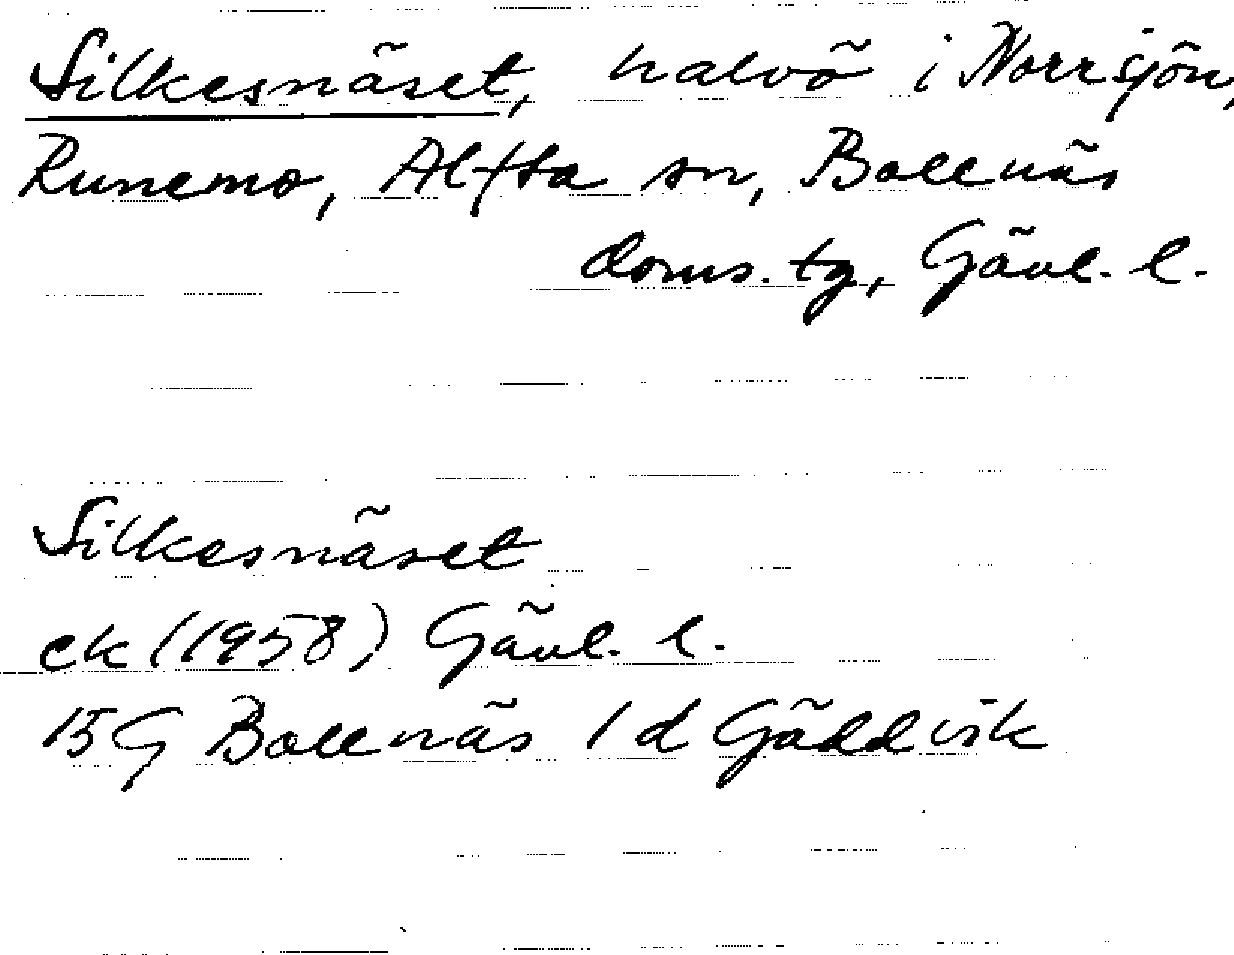 Silkesnäset, halvö i Norrsjön,
Runemo, Alfta sn, Bollnäs
doms. tg, Gävl. l.
Silkesnäset
ek (1958) Gävl. l.
15G Bollnäs 1d Gäddvik